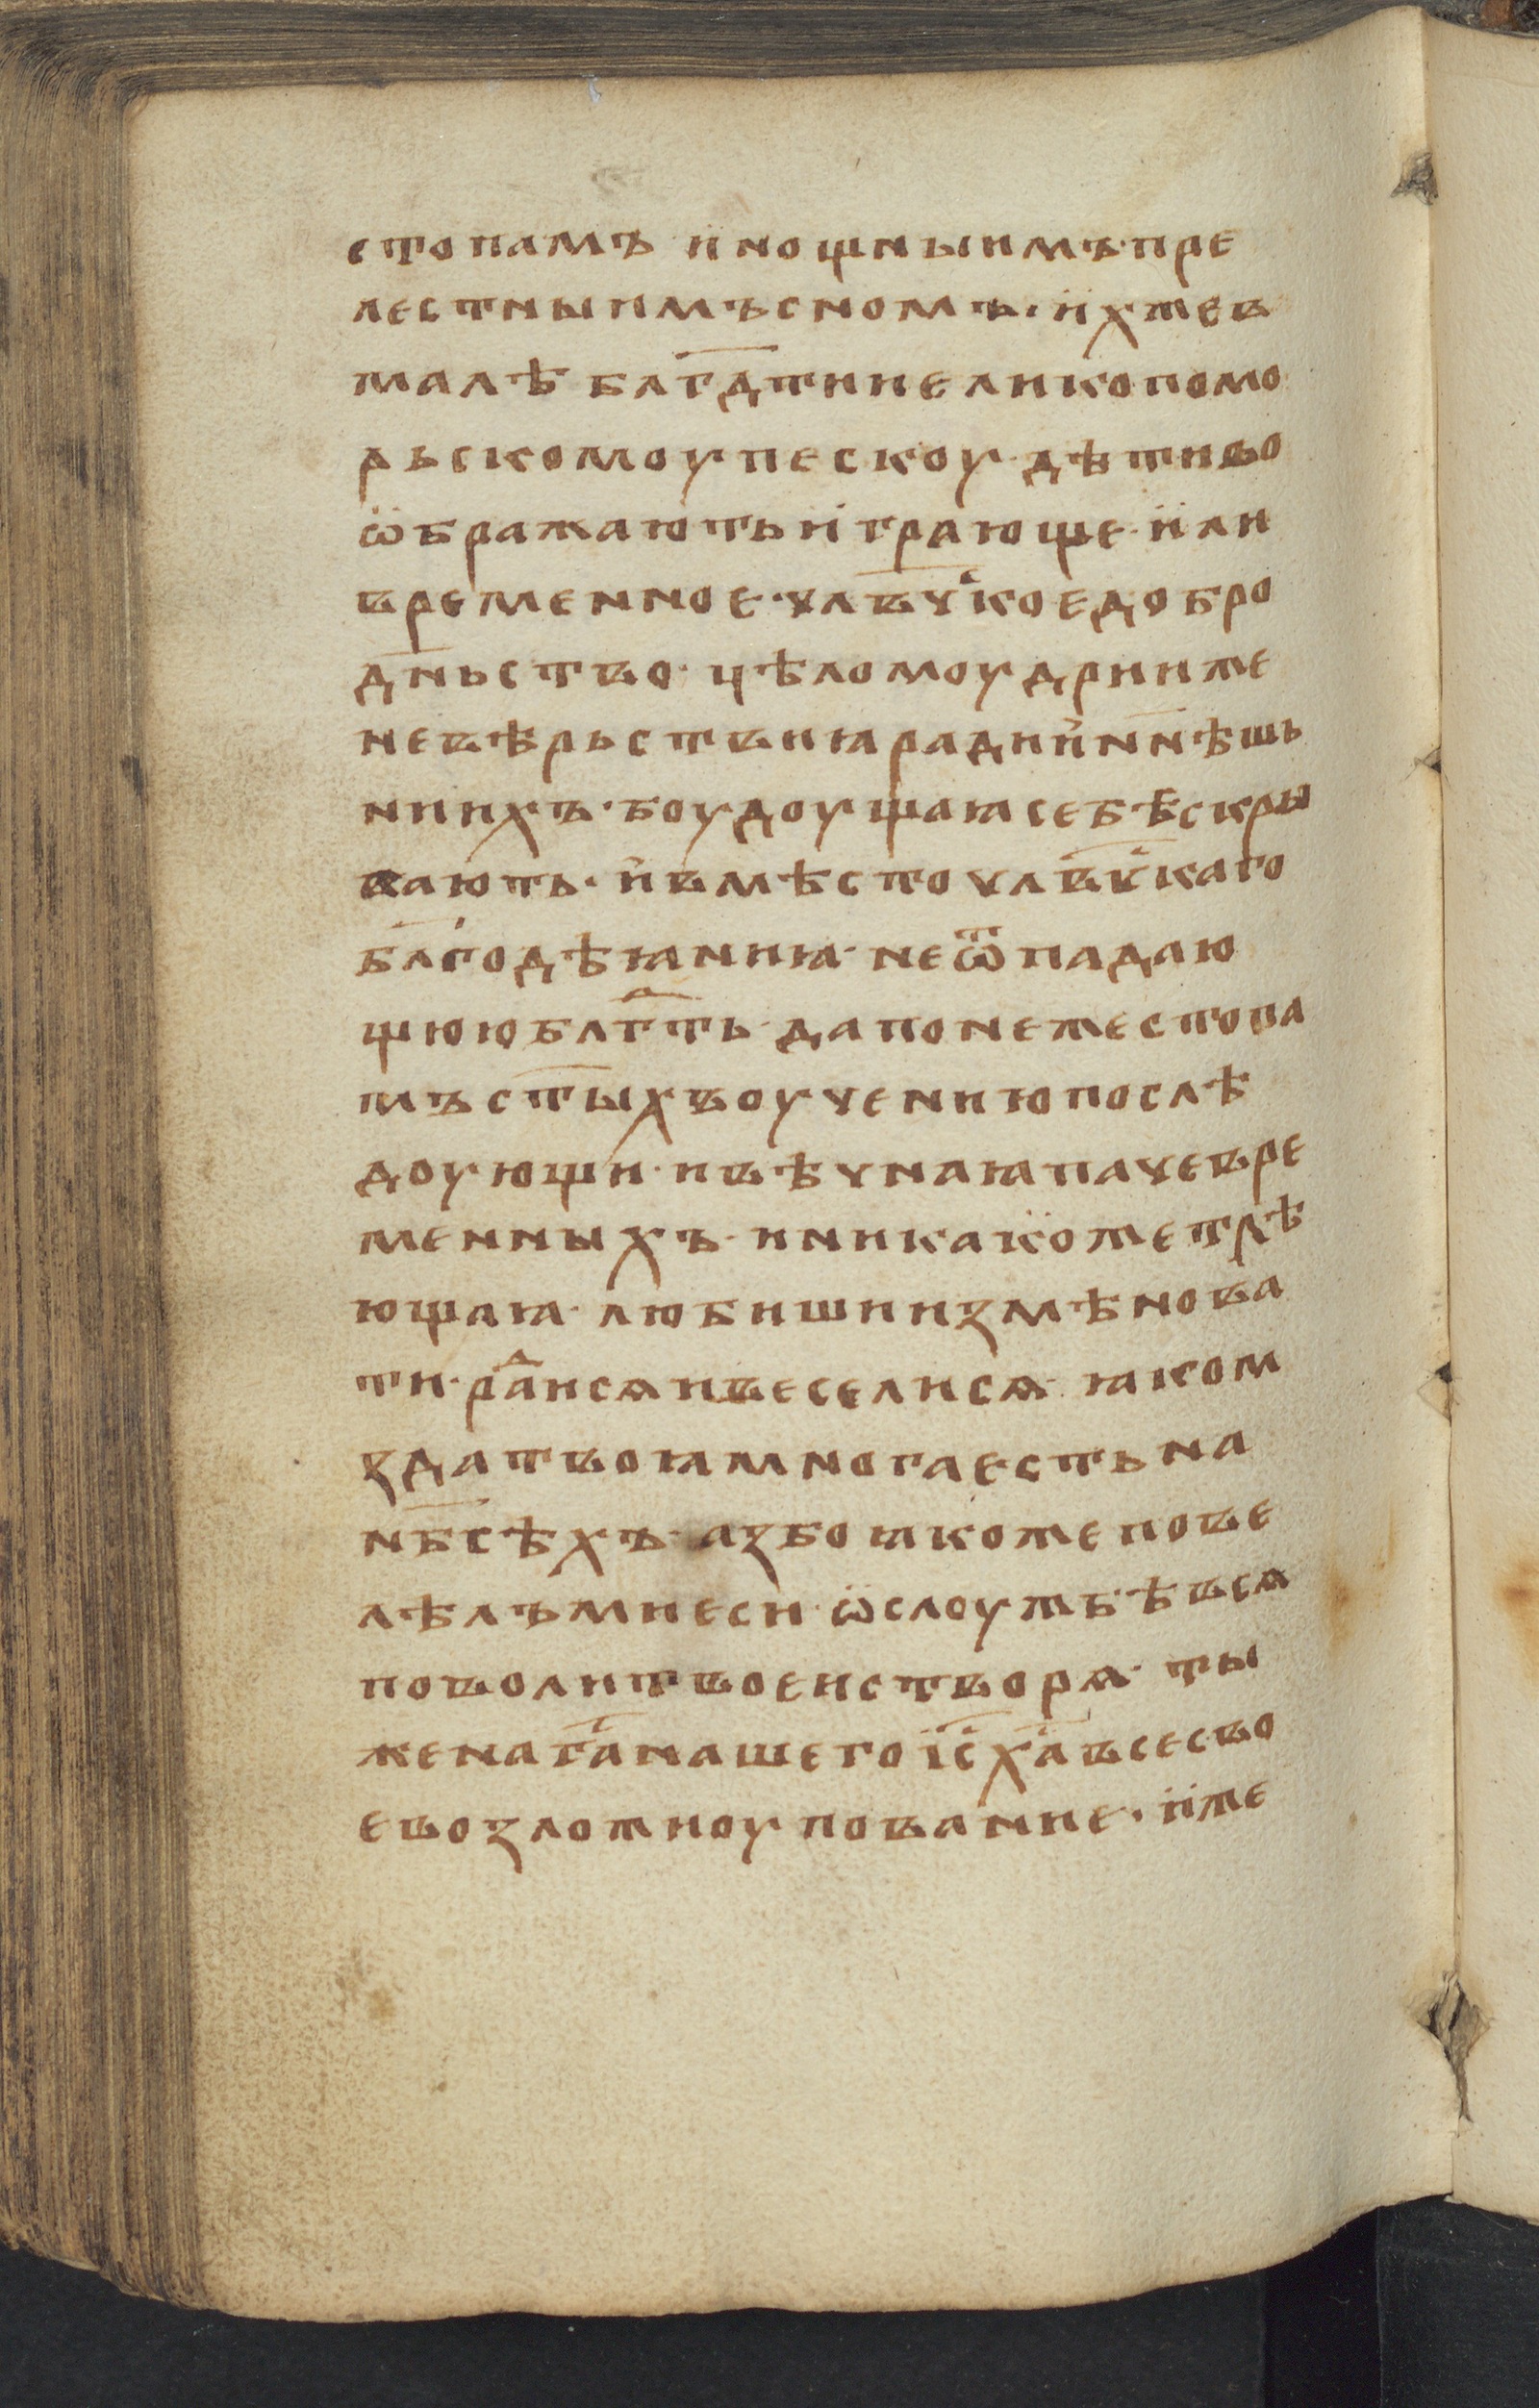 стопамъ и нощныимъ·пре
лестныимъсномъ·ӥхжев
малѣ блг҃дтиіеликопомо
рьскомоупескоу·дѣтиво
ѡ̈бражаютьиграюще·ӥли
временное·члв҃чⷭкоедобро
дн҃ьство·цѣломоудриꙗже
невѣрьствиꙗрадиин҃нѣшь
ниихъ·боудоущаꙗсебѣскры
вають·ивмѣсточлв҃чⷭкаго
бл҃годѣꙗниꙗ·неѿпадаю
щююблгⷣ҇ть·дапонежестопа
мъст҃ыхвоучениюпослѣ
доующи·ивѣчнаꙗпачевре
менныхъ·иникакожетлѣ
ющаꙗ·любишиизмѣнова
ти·раⷣисѧивеселисѧ·ꙗком
здатвоꙗмногаестьна
нб҃сѣхъ·азбоꙗкожепове
лѣлъмиеси·ѡ̈слоужбѣвсѧ
поволитвоеистворѧ·ты
женага҃нашегоіс҃ха҃всесво
евозложиоупование·ӥже